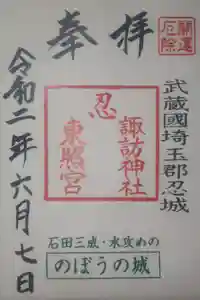 開運
厄除
奉拝
武蔵國埼玉郡忍城
忍
諏訪神社
東照宮
令和二年六月七日
石田三成・水攻めの
のぼうの城